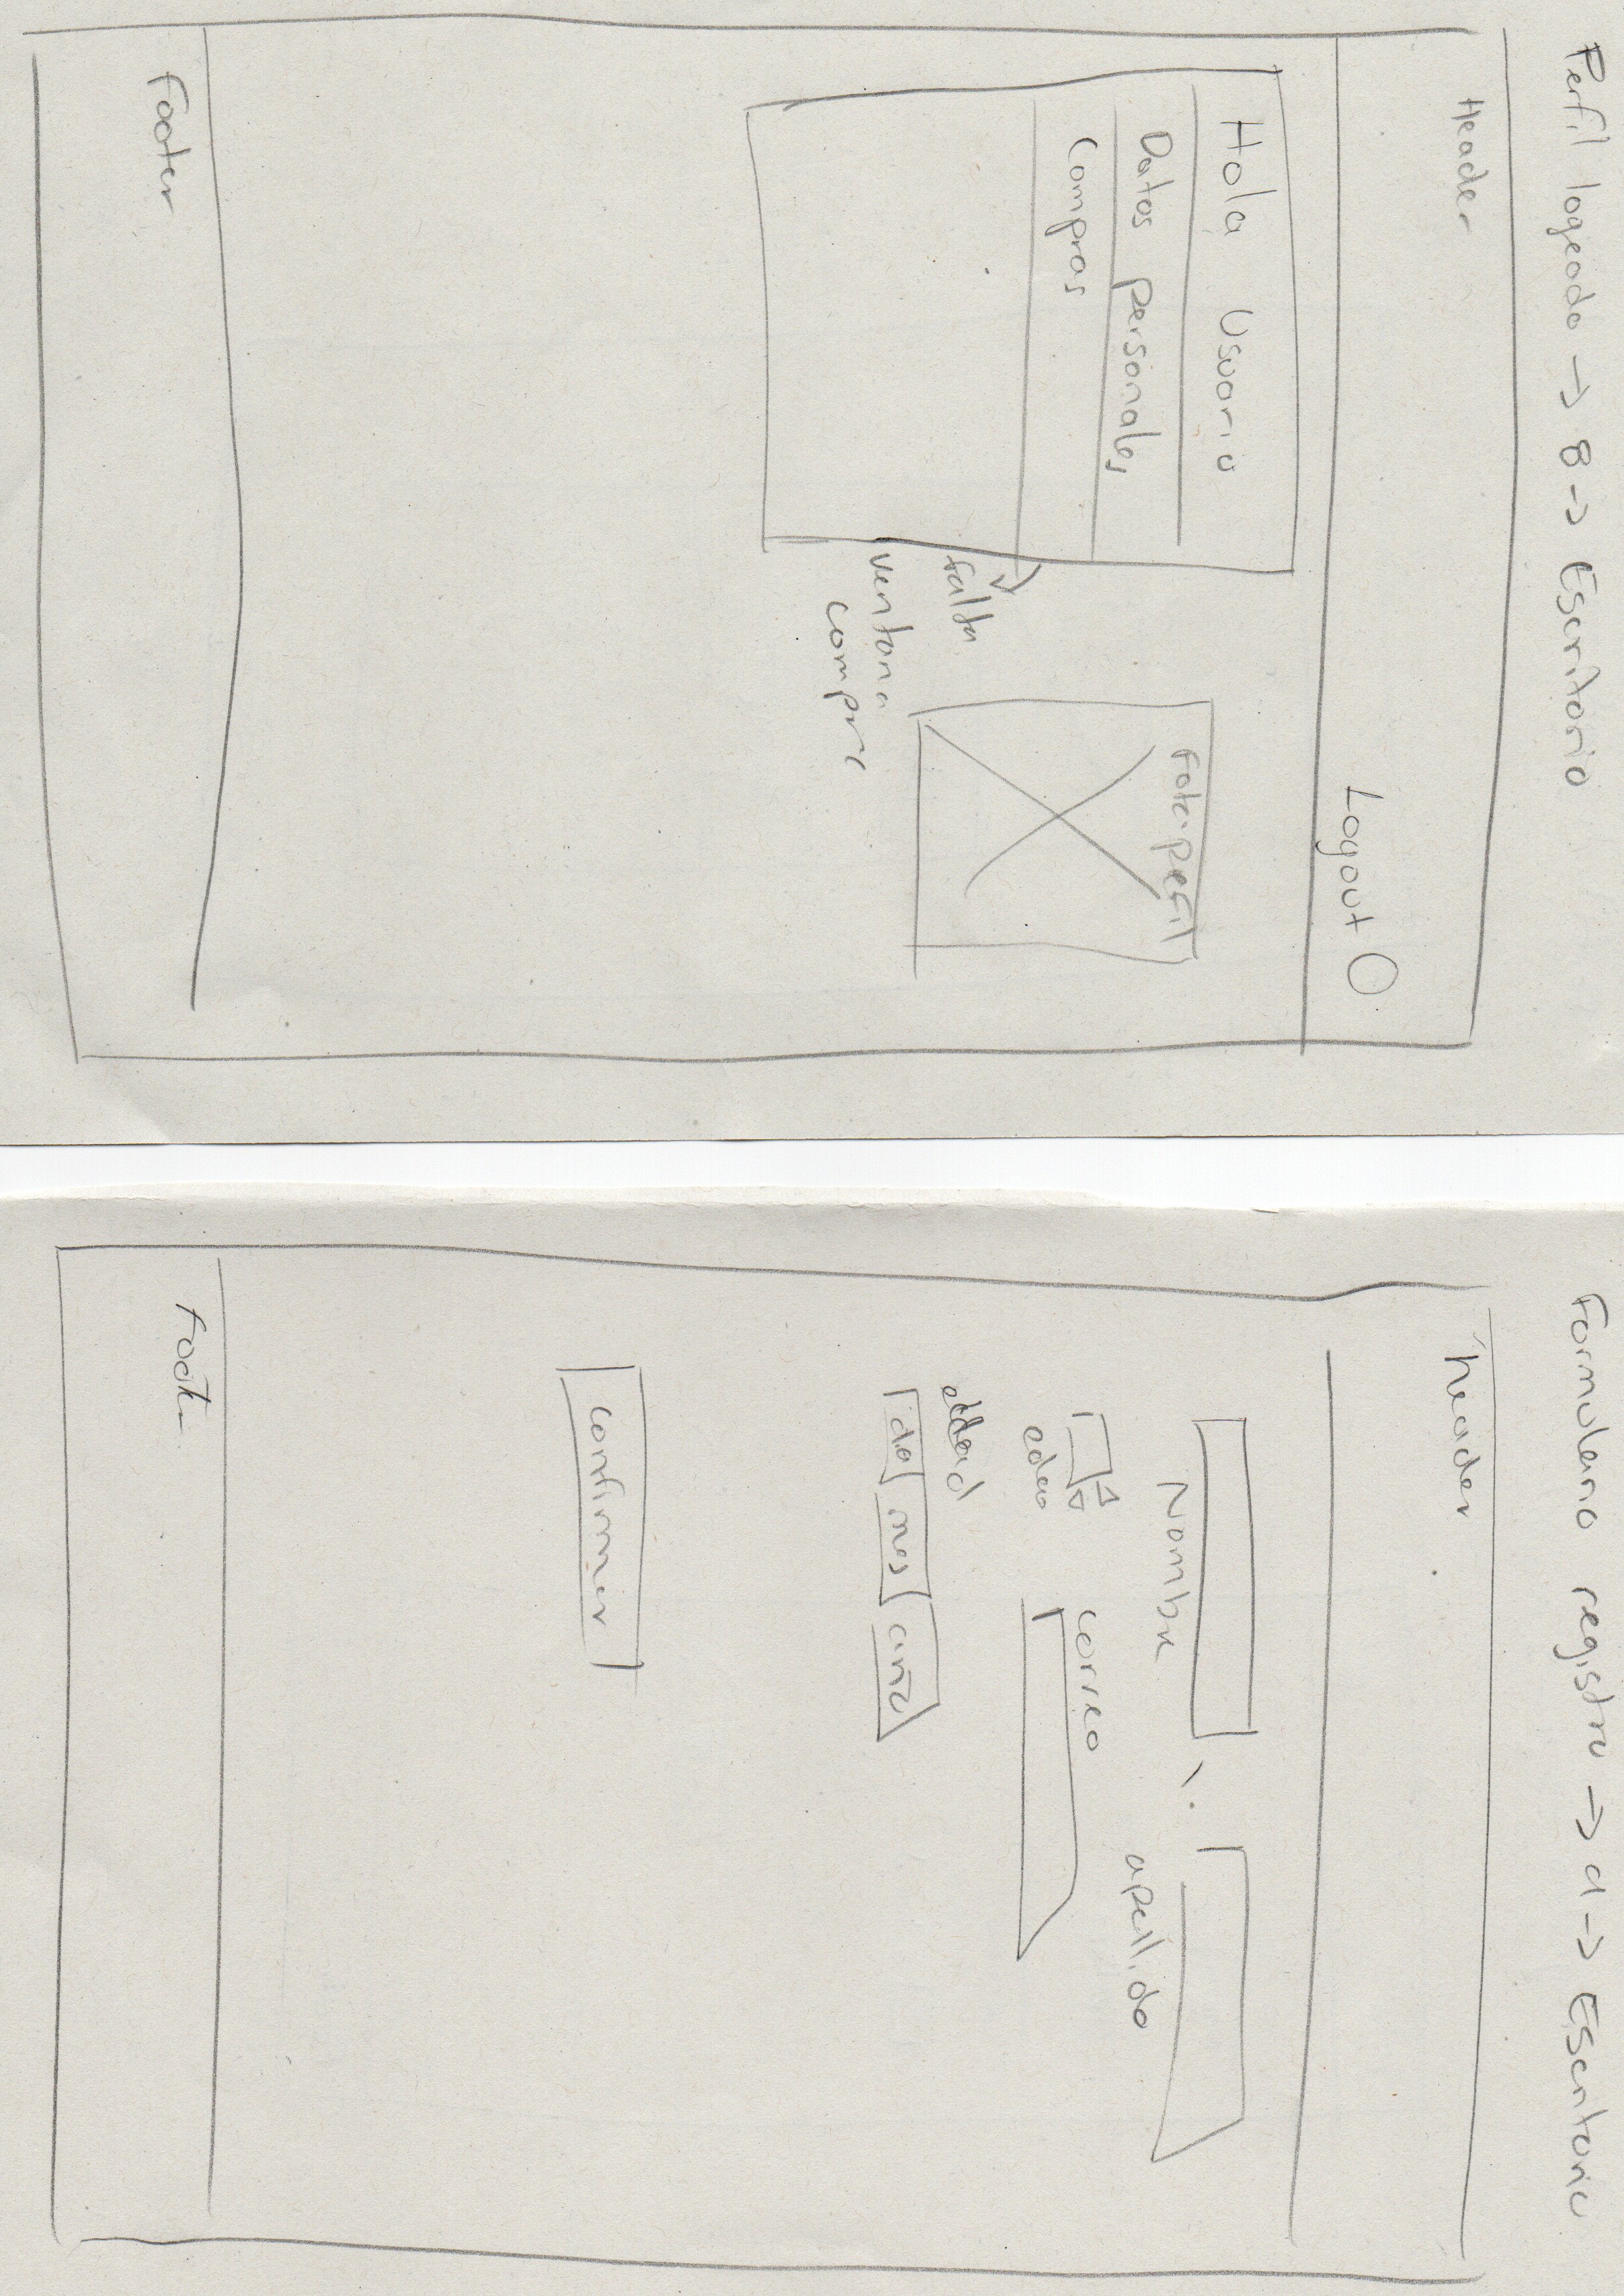 Perfil logeado -> 8 -> Escritorio
Header
Logout
Hola Usuario
Datos personales
Compras
falta
ventana
compra
Foto perfil
Formulario registro -> 9 -> Escritorio
header
Nombre
apellido
edad
correo
edad
dia mes año
confirmar
footer
Footer